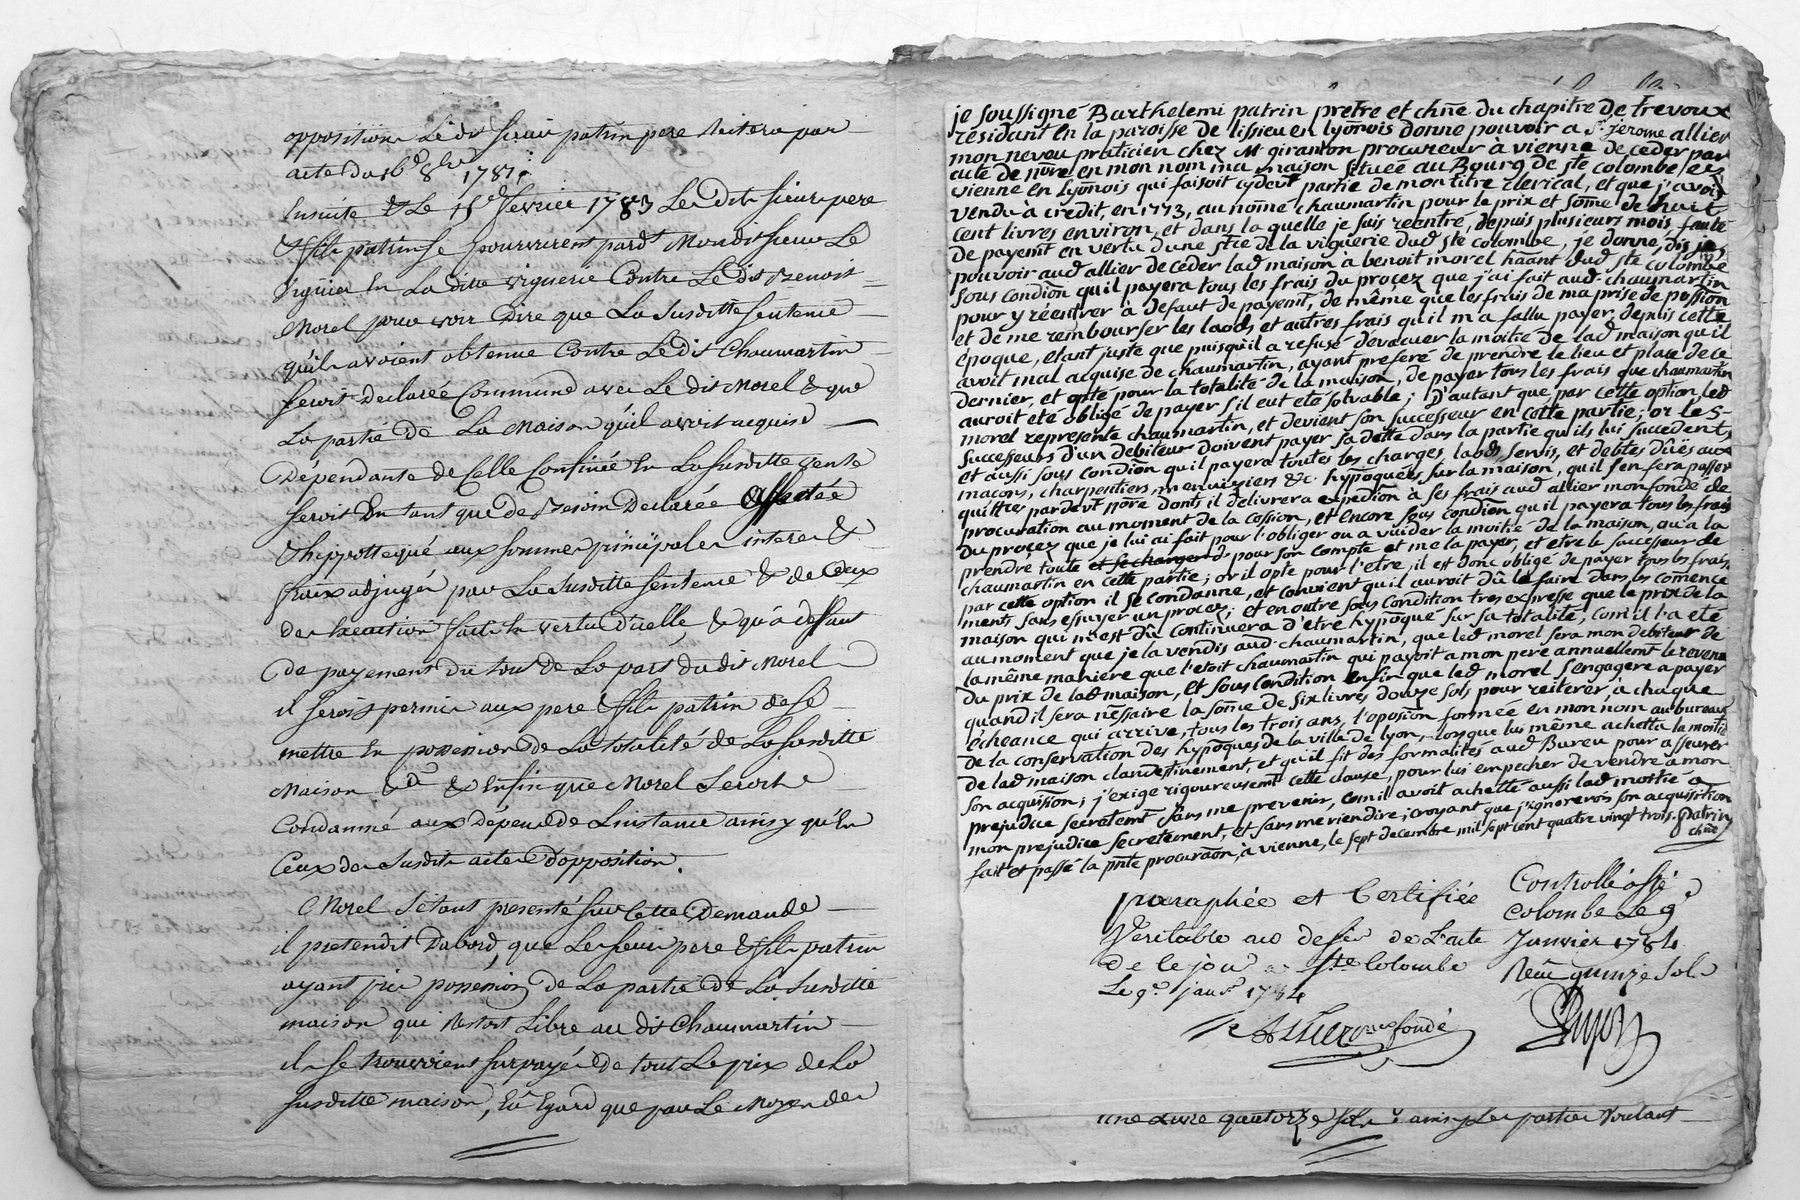 opposition Ledit sieur patrin pere Reitera par
acte du 16e 8bre 1781.
Ensuite & Le 15e fevrier 1783 Ledit sieur pere
& fils patrin se pourvurent pardt Mondit sieur Le
viguier En La ditte viguerie Contre Ledit Benoit
Morel pour voir Dire que La susditte sentence
qu'ils avoient obtenue Contre Ledit Chaumartin
seroit Declarée Commune avec Le dit Morel & que
La partie de La Maison qu'il avoit acquise
Dépendante de Celle Confinée En La susditte vente
seroit En tant que de Besoin Declarée affectée
& hippottequée aux sommes principales interets &
fraix adjugés par La susditte sentence & de Ceux
des Execution faits En vertu D'icelle & qu'à deffaut
de payement du tout de La part dudit Morel
il seroit permis aux pere & fils patrin de se
mettre En possession de La totalité de La susditte
Maison &a & Enfin que Morel seroit
Condamné aux Dépens de L'instance ainsy qu'En
Ceux des susdits actes D'opposition.
Morel s'étant presenté sur Cette Demande
il pretendit D'abord, que Les sieurs pere & fils patrin
ayant pris possession de La partie de La susditte
maison qui Restoit Libre au dit Chaumartin
ils se trouvoient surpayés de tout Le prix de La
susditte maison, Eu Egard que par Le Moyen des
je soussigné Barthelemi patrin pretre et chne du chapitre de trevoux
résidant en la paroisse de lissieu en lyonnois donne pouvoir a Sr jérome allier
mon neveu praticien chez Mr giranton procureur à vienne de ceder par
acte de nore en mon nom ma maison située au Bourg de ste colombe les
vienne en lyonois qui faisoit cydevt partie de mon titre clerical, et que j'avois
vendu à credit, en 1773, au nomé chaumartin pour le prix et some de huit
cent livres environ, et dans la quelle je suis reentré, depuis plusieurs mois faute
de payemt en vertu d'une stce de la viguerie dud ste colombe, je donne, dis je,
pouvoir aud allier de céder lad maison à benoit morel haant dud ste colombe
sous condion qu'il payera tous les frais du procez que j'ai fait aud chaumartin
pour y réentrer à défaut de payemt, de même que les frais de ma prise de possion
et de me rembourser les laods et autres frais qu'il m'a fallu payer, depuis cette
époque, etant juste que puisqu'il a refusé d'evacuer la moitié de lad maison qu'il
avoit mal acquise de chaumartin, ayant preferé de prendre le lieu et place de ce
dernier, et opté pour la totalité de la maison, de payer tous les frais que chaumartin
auroit eté obligé de payer s'il eut eté solvable; d'autant que par cette option, led
morel represente chaumartin, et devient son successeur en cette partie; or les
successeurs d'un debiteur doivent payer sa dette dans la partie qu'ils lui succedent,
et aussi sous condion qu'il payera toutes les charges, laods, servis, et debtes dûes aux
macons, charpentiers, menuisiers &c. hypoquées sur la maison, qu'il s'en fera passer
quittces pardevt nore donts il delivrera expedion à ses frais aud allier mon fondé de
procuration au moment de la cession, et encore sous condion qu'il payera tous les frais
du procez que je lui ai fait pour l'obliger ou a vuider la moitié de la maison, ou a la
prendre toute et se charger de pour son compte et me la payer, et etre le successeur de
chaumartin en cette partie; or il opte pour l'etre, il est donc obligé de payer tous les frais,
par cette option il se condanne, et convient qu'il auroit dû le faire dans les comence
ments sans essuyer un procez; et en outre sous condition tres expresse que le prix de la
maison qui m'est dû continuera d'etre hypoqué sur sa totalité, com'il l'a eté
au moment que je la vendis aud chaumartin, que led morel sera mon debiteur de
la même maniere que l'etoit chaumartin qui payoit a mon pere annuellemt le revenu
du prix de lad maison, et sous condition enfin que led morel s'engagera a payer
quand il sera nessaire la some de six livres douze sols pour reiterer à chaque
écheance qui arrive, tous les trois ans, l'oposion formée en mon nom au bureau
de la conservation des hypoques de la ville de lyon, lorsque lui même achetta la moitié
de lad maison clandestinement et qu'il fit des formalités aud Bureu pour asseurer
son acquision; j'exige rigoureusemt cette clause, pour lui empecher de vendre a mon
prejudice secretemt sans me prevenir, com'il avoit achetté aussi lad moitié a
mon prejudice secretement, et sans me rien dire; croyant que j'ignorerois son acquisition
fait et passé la pnte procuraon, à vienne, le sept decembre mil sept cent quatre vingt trois. Patrin
chne
paraphée et Certifiée
Veritable au desir de L'acte
de ce jour a Ste Colombe
Le 9e janvr 1784
Allier fondé
Controllé à Ste
Colombe Le 9e
Janvier 1784
Reçu quinze sols
une Livre quatorze sols ainsy Les parties Voulant